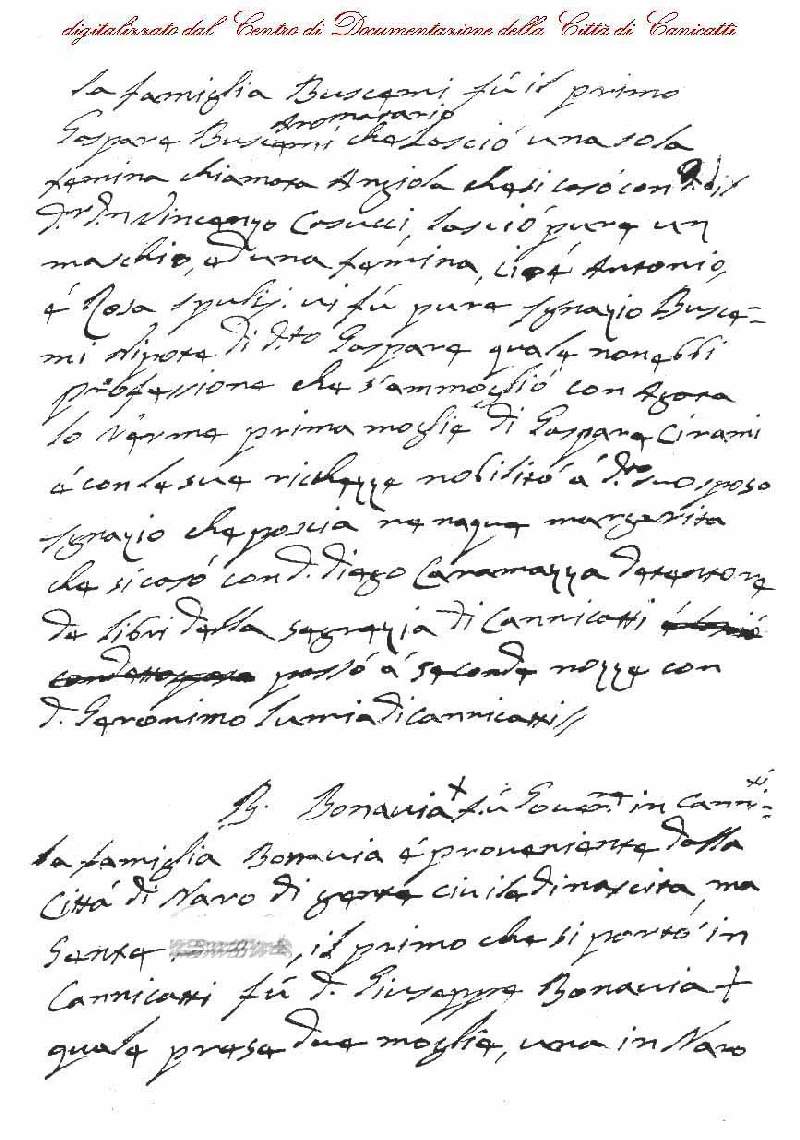 digitalizzato dal Centro di Documentazione della Città di Canicattì
la famiglia Buscemi fú il primo
Aromatario
Gaspare Buscemi che lasció una sola
femina chiamata Angiola che si casó con D. il
D.r D.n Vincenzo Casucci, lasció pure un
maschio, ed una femina, cioé Antonio,
é Rosa vi fú pure Ignazio Busce=
mi Nipote di d.to Gaspare quale non ebbi
professione che s'ammoglió con Agata
lo Verme prima moglie di Gaspare Cirami
é con le sue ricchezze nobilitó á d.to suo sposo
Ignazio che poscia ne naque Margarita
che si casó con D. Diego Caramazza detentore
de libri della segrezia di Cannicatti
passó á seconde nozze con
D. Geronimo Lumia di Cannicatti //
B. Bonavia + fú Gover.t in Canni=
la famiglia Bonavia é proveniente dalla
Cittá di Naro di gente civile di nascita, ma
Gente , il primo che si portó in
Cannicatti fú D. Giuseppe Bonavia +
quale prese due moglie, una in Naro